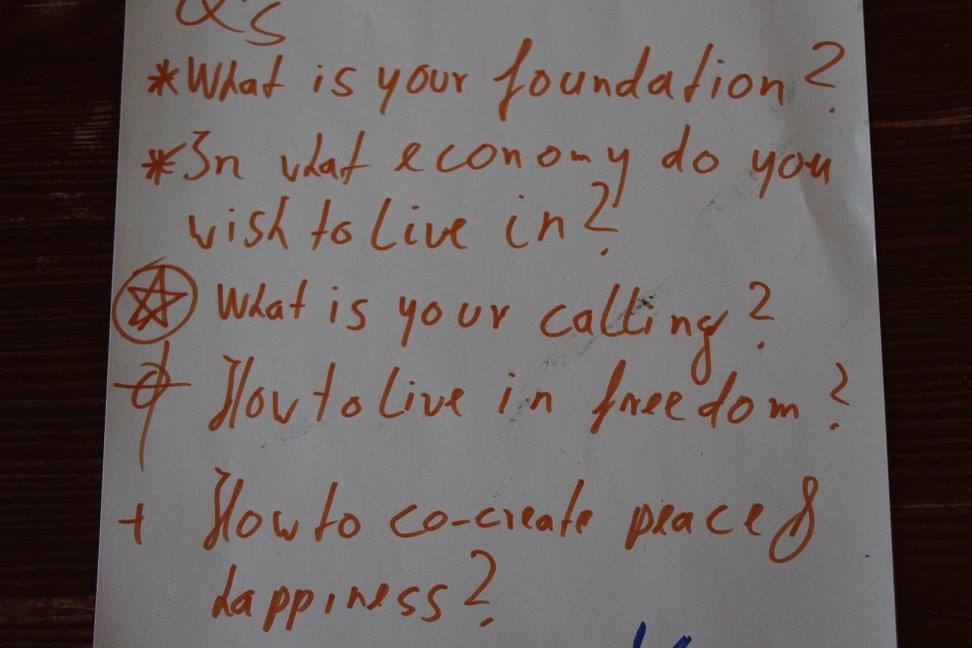 Q's
*What is your foundation?
*In what economy do you
wish to live in?
What is your calling?
How to live in freedom?
+ How to co-create peace &
happiness?